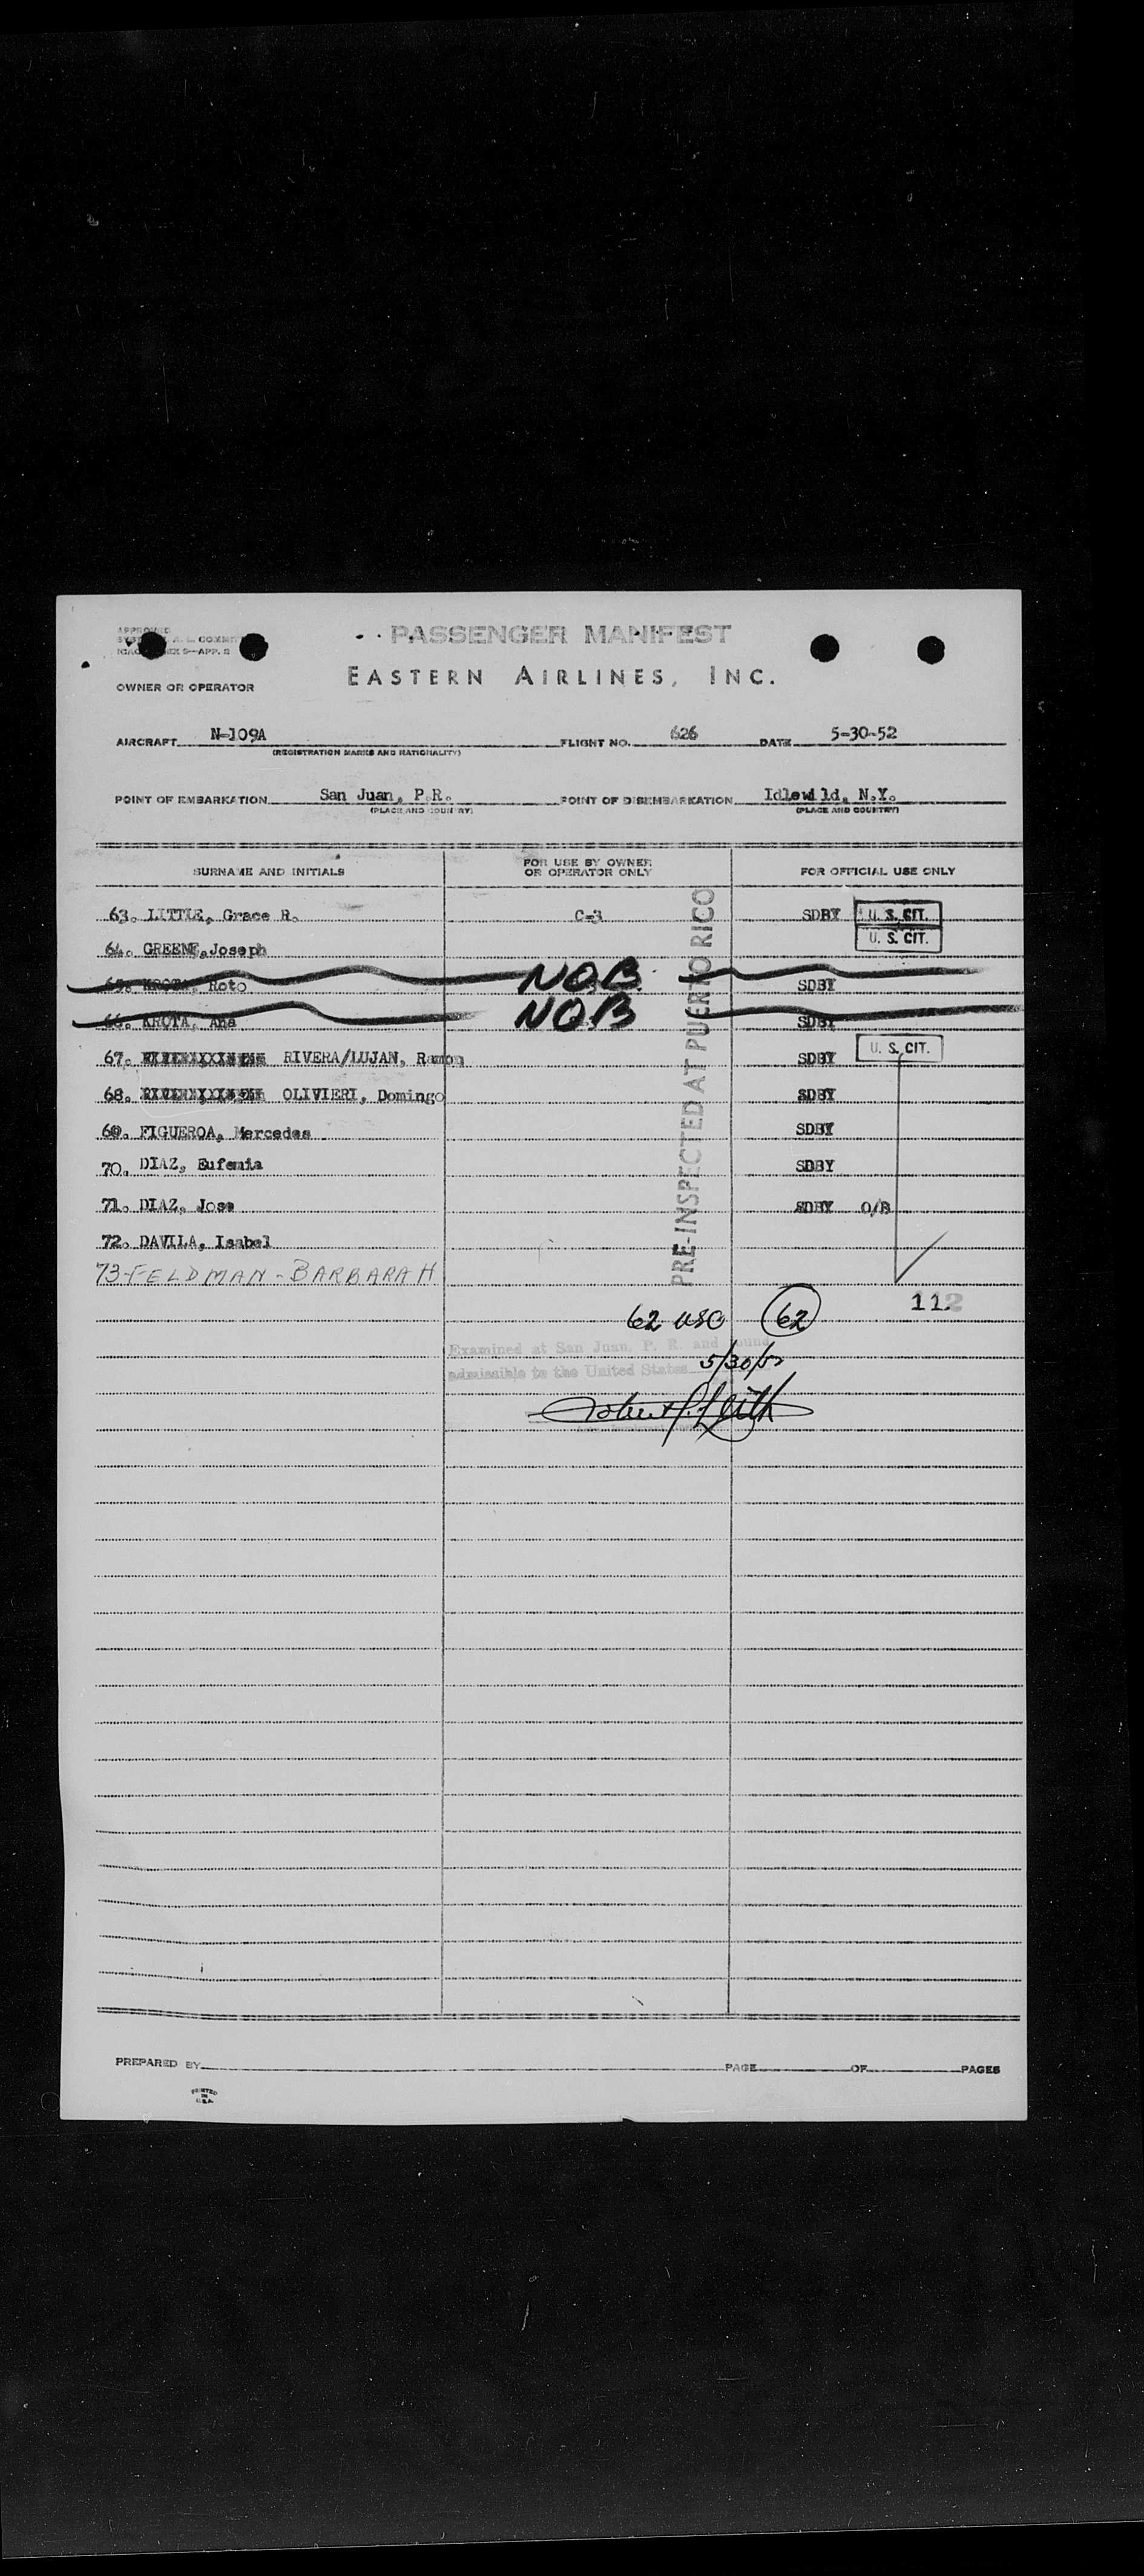 APPROVED
PASSENGER MANIFEST
EASTERN AIRLINES, INC.
OWNER OR OPERATOR
AIRCRAFT N-109A FLIGHT NO. 626 DATE 5-30-52
(REGISTRATION MARKS AND NATIONALITY)
POINT OF EMBARKATION San Juan, P.R. POINT OF DISEMBARKATION Idlewild, N.Y.
(PLACE AND COUNTRY) (PLACE AND COUNTRY)
SURNAME AND INITIALS FOR USE BY OWNER OR OPERATOR ONLY FOR OFFICIAL USE ONLY
63. LITTLE, Grace R. C-3 SDBY U. S. CIT.
64. GREENE, Joseph U. S. CIT.
65. KROTA, Roto NOB SDBY
66. KROTA, Ana NOB SDBY
67. RIVERA/LUJAN, Ramon SDBY U. S. CIT.
68. OLIVIERI, Domingo SDBY
69. FIGUEROA, Mercedes SDBY
70. DIAZ, Eufemia SDBY
71. DIAZ, Jose SDBY O/B
72. DAVILA, Isabel
73-FELDMAN-BARBARA H
PRE-INSPECTED AT PUERTO RICO
112
62 USC 62
Examined at San Juan, P. R. and found
admissible to the United States 5/30/52
PREPARED BY PAGE OF PAGES
PRINTED
IN
U.S.A.